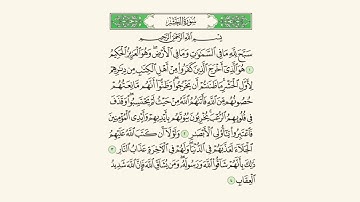 سُورَةُ الْحَشْرِ
بِسْمِ اللَّهِ الرَّحْمَٰنِ الرَّحِيمِ
سَبَّحَ لِلَّهِ مَا فِي السَّمَاوَاتِ وَمَا فِي الْأَرْضِ ۖ وَهُوَ الْعَزِيزُ الْحَكِيمُ
١ هُوَ الَّذِي أَخْرَجَ الَّذِينَ كَفَرُوا مِنْ أَهْلِ الْكِتَابِ مِنْ دِيَارِهِمْ
لِأَوَّلِ الْحَشْرِ ۚ مَا ظَنَنْتُمْ أَنْ يَخْرُجُوا ۖ وَظَنُّوا أَنَّهُمْ مَانِعَتُهُمْ
حُصُونُهُمْ مِنَ اللَّهِ فَأَتَاهُمُ اللَّهُ مِنْ حَيْثُ لَمْ يَحْتَسِبُوا ۖ وَقَذَفَ
فِي قُلُوبِهِمُ الرُّعْبَ ۚ يُخْرِبُونَ بُيُوتَهُمْ بِأَيْدِيهِمْ وَأَيْدِي الْمُؤْمِنِينَ
فَاعْتَبِرُوا يَا أُولِي الْأَبْصَارِ ٢ وَلَوْلَا أَنْ كَتَبَ اللَّهُ عَلَيْهِمُ
الْجَلَاءَ لَعَذَّبَهُمْ فِي الدُّنْيَا ۖ وَلَهُمْ فِي الْآخِرَةِ عَذَابُ النَّارِ ٣
ذَٰلِكَ بِأَنَّهُمْ شَاقُّوا اللَّهَ وَرَسُولَهُ ۖ وَمَنْ يُشَاقِّ اللَّهَ فَإِنَّ اللَّهَ شَدِيدُ
الْعِقَابِ ٤